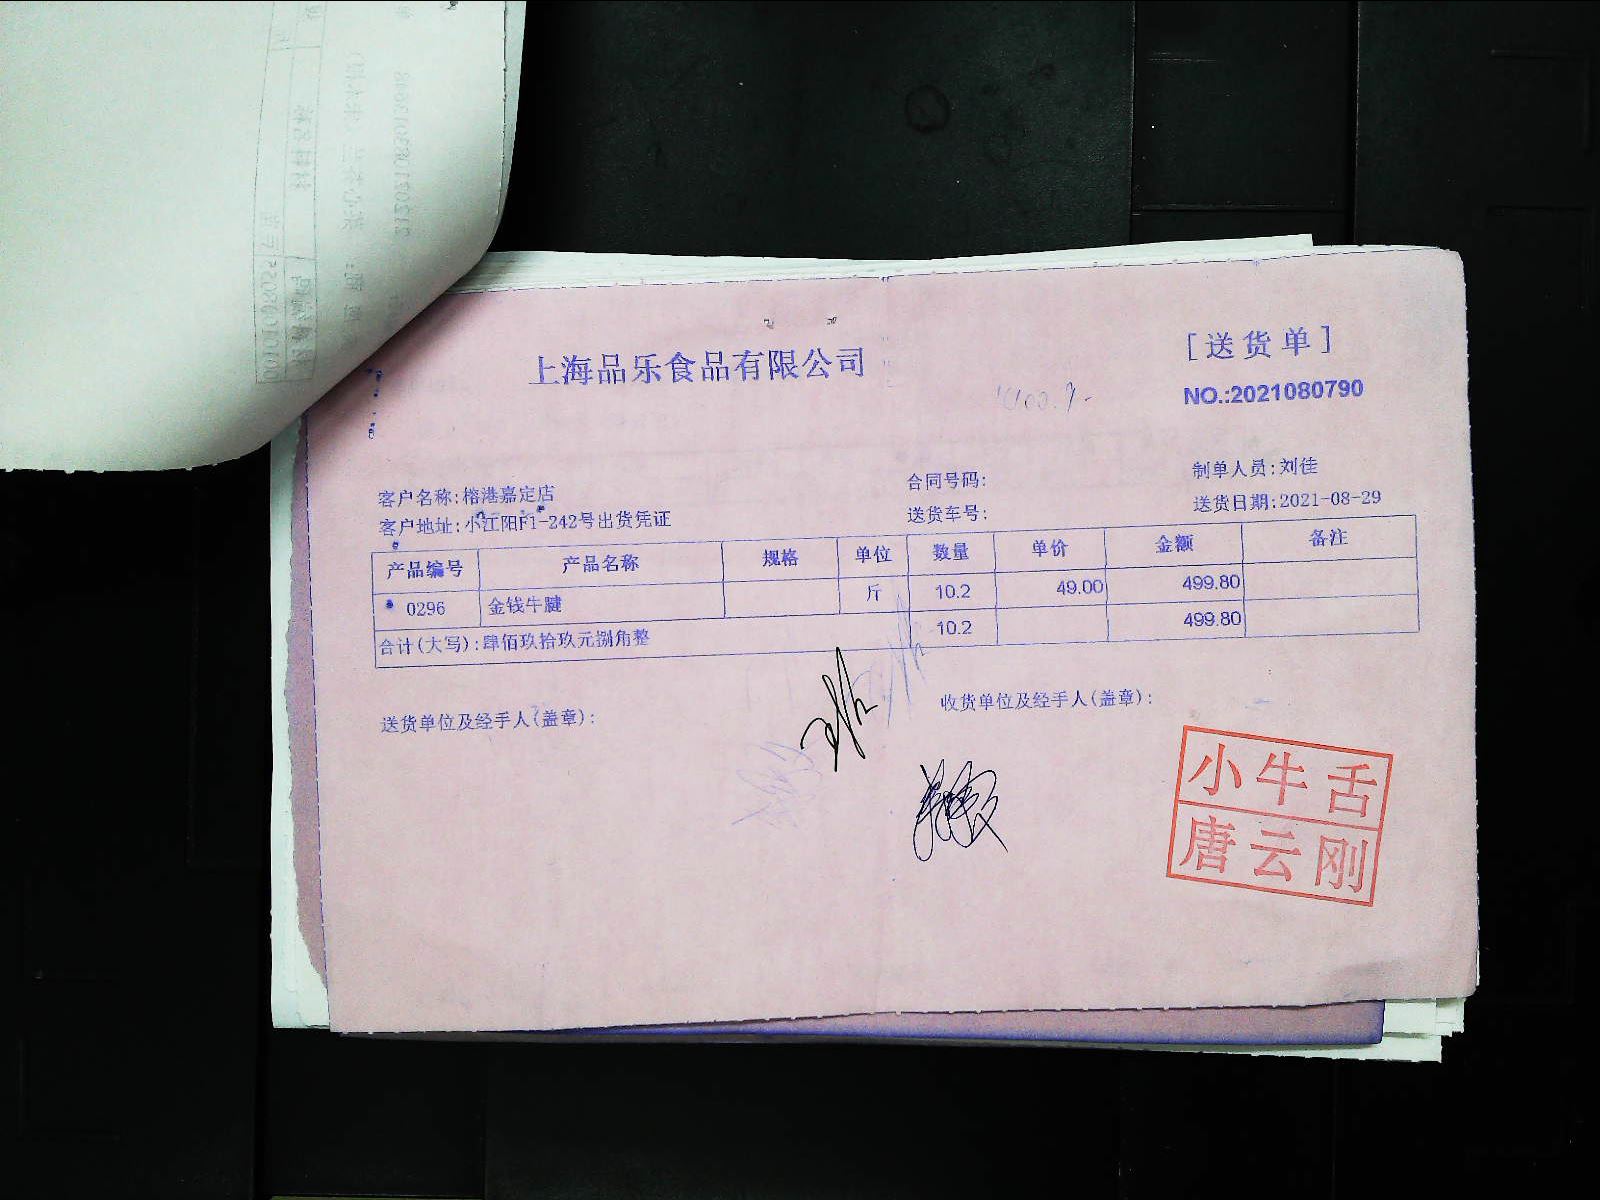 上海品乐食品有限公司
[送货单]
NO.:2021080790
客户名称:榕港嘉定店
合同号码:
制单人员:刘佳
客户地址:小江阳F1-242号出货凭证
送货车号:
送货日期:2021-08-29
产品编号 产品名称 规格 单位 数量 单价 金额 备注
0296 金钱牛腱 斤 10.2 49.00 499.80
合计(大写):肆佰玖拾玖元捌角整 10.2 499.80
送货单位及经手人(盖章):
收货单位及经手人(盖章):
小牛舌
唐云刚